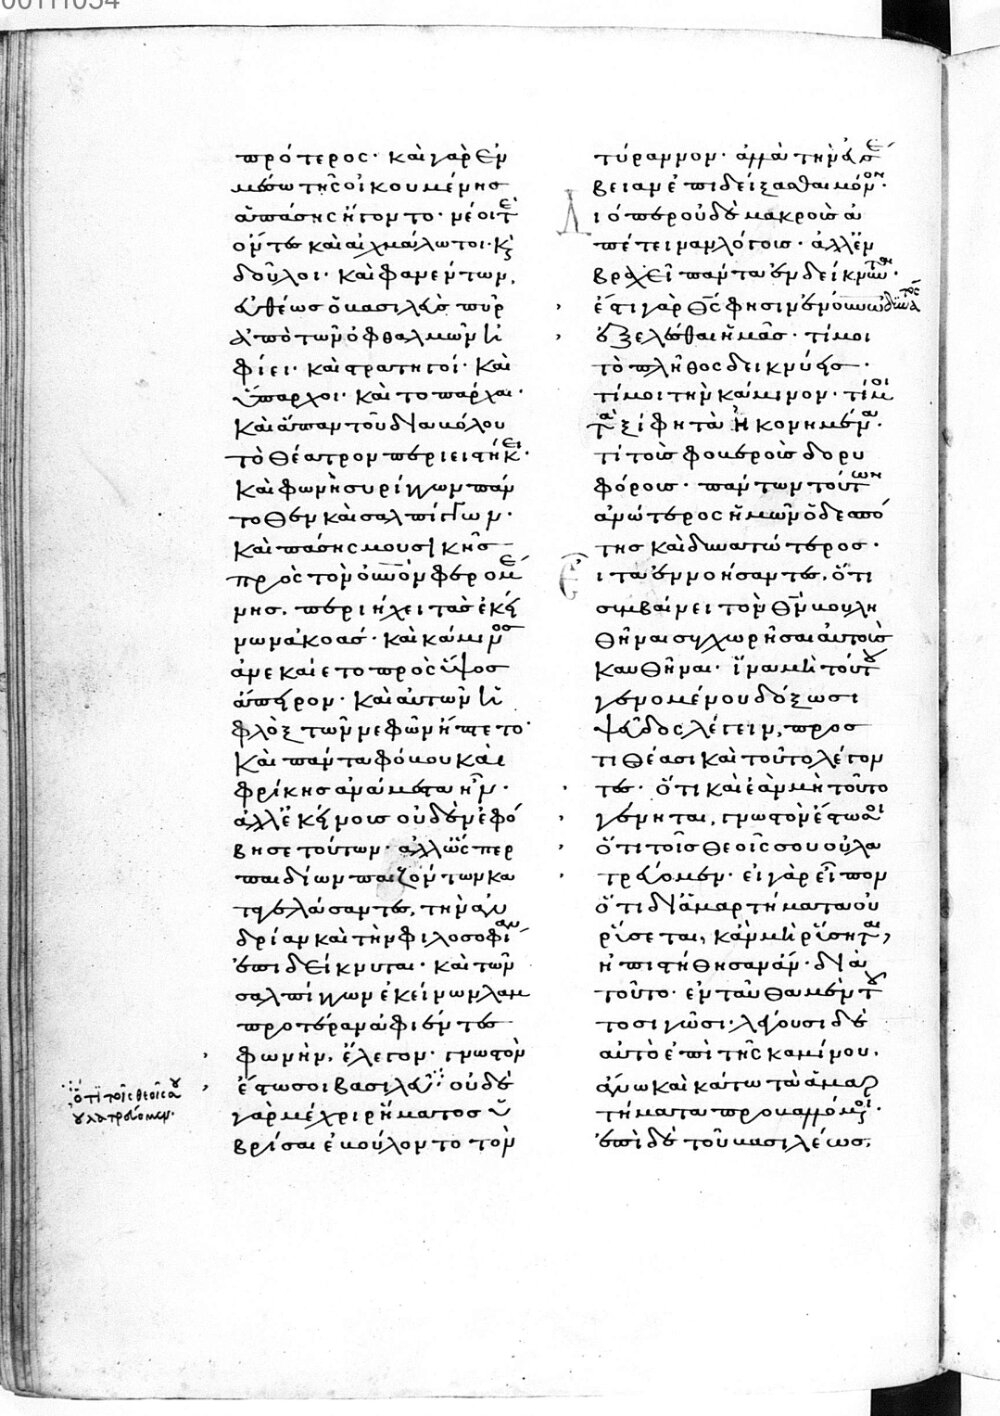 πρότερος· καὶ γὰρ ἐν
μέσω τῆς οἰκουμένης
ἁπάσης ἤγοντο· νέοι τὲ
ὄντες καὶ αἰχμάλωτοι· κ
δοῦλοι· καὶ φανέντων,
εὐθέως ὁ βασιλεὺς πῦρ
ἀπὸ τῶν ὀφθαλμῶν ἠ
φίει· καὶ στρατηγοί· καὶ
ὕπαρχοι· καὶ τοπάρχαι·
καὶ ἅπαν τοῦ διαβόλου
τὸ θέατρον περιειστήκει·
καὶ φωνὴ συρίγγων πάν
τοθεν καὶ σαλπίγγων·
καὶ πάσης μουσικῆς
πρὸς τὸν οὐνον φερομέ
νης, περιήχει τὰς ἐκεί
νων ἀκοάς· καὶ κάμινος
ἀνεκαίετο πρὸς ὕψος
ἄπειρον· καὶ αὐτῶν ἡ
φλὸξ τῶν νεφῶν ἥπτετο·
καὶ πάντα φόβου καὶ
φρίκης ἀνάμεστα ἦν·
ἀλλ' ἐκείνοις οὐδὲν ἐφό
βησε τούτων· ἀλλ' ὥσπερ
παιδίων παιζόντων κα
ταγελάσαντες, τὴν ἀν
δρίαν καὶ τὴν φιλοσοφίαν
ἐπιδείκνυται· καὶ τῶν
σαλπίγγων ἐκείνων λαμ
προτέραν ἀφιέντες
φωνὴν, ἔλεγον· γνωστὸν
ἔστω σοι βασιλεῦ· οὐδὲ
γὰρ μέχρι ῥήματος ὑ
βρίσαι ἐβούλοντο τὸν
ὅτι τοῖς θεοῖς σου
οὐ λατρεύομεν·
τύραννον· ἀλλὰ τὴν εὐσέ
βειαν ἐπιδείξασθαι μόνον·
Διόπερ οὐδὲ μακροὺς ἀ
πέτειναν λόγους· ἀλλ' ἐν
βραχεῖ πάντα ἐνδείκνυνται·
ἔστι γὰρ θς φησιν ἐν οὐνω δυνατὸς
ἐξελέσθαι ἡμᾶς· τί μοι
τὸ πλῆθος δεικνύεις·
τί μοι τὴν κάμινον· τί μοι
τὰ ξίφη τὰ ἠκονημένα·
τί τοὺς φοβεροὺς δορυ
φόρους· πάντων τούτων
ἀνώτερος ἡμῶν ὁ δεσπό
της καὶ δυνατώτερος·
Εἶτα ἐννοήσαντες, ὅτι
συμβαίνει τὸν θν βουλη
θῆναι συγχωρῆσαι αὐτοὺς
καυθῆναι· ἵνα μὴ τούτου
γενομένου δόξωσι
ψεῦδος λέγειν, προς
τιθέασι καὶ τοῦτο λέγον
τες· ὅτι καὶ ἐὰν μὴ τοῦτο
γένηται, γνωστὸν ἔστω σοι
ὅτι τοῖς θεοῖς σου οὐ λα
τρεύομεν· εἰ γὰρ εἶπον
ὅτι δι' ἁμαρτήματα οὐ
ῥύσεται, κἂν μὴ ῥύσηται,
ἠπιστήθησαν ἄν· διὰ
τοῦτο· ἐνταῦθα μὲν τοῦ
το σιγῶσι· λέγουσι δὲ
αὐτὸ ἐπὶ τῆς καμίνου,
ἄνω καὶ κάτω τὰ ἁμαρ
τήματα προβαλλόμενοι·
ἐπὶ δὲ τοῦ βασιλέως,